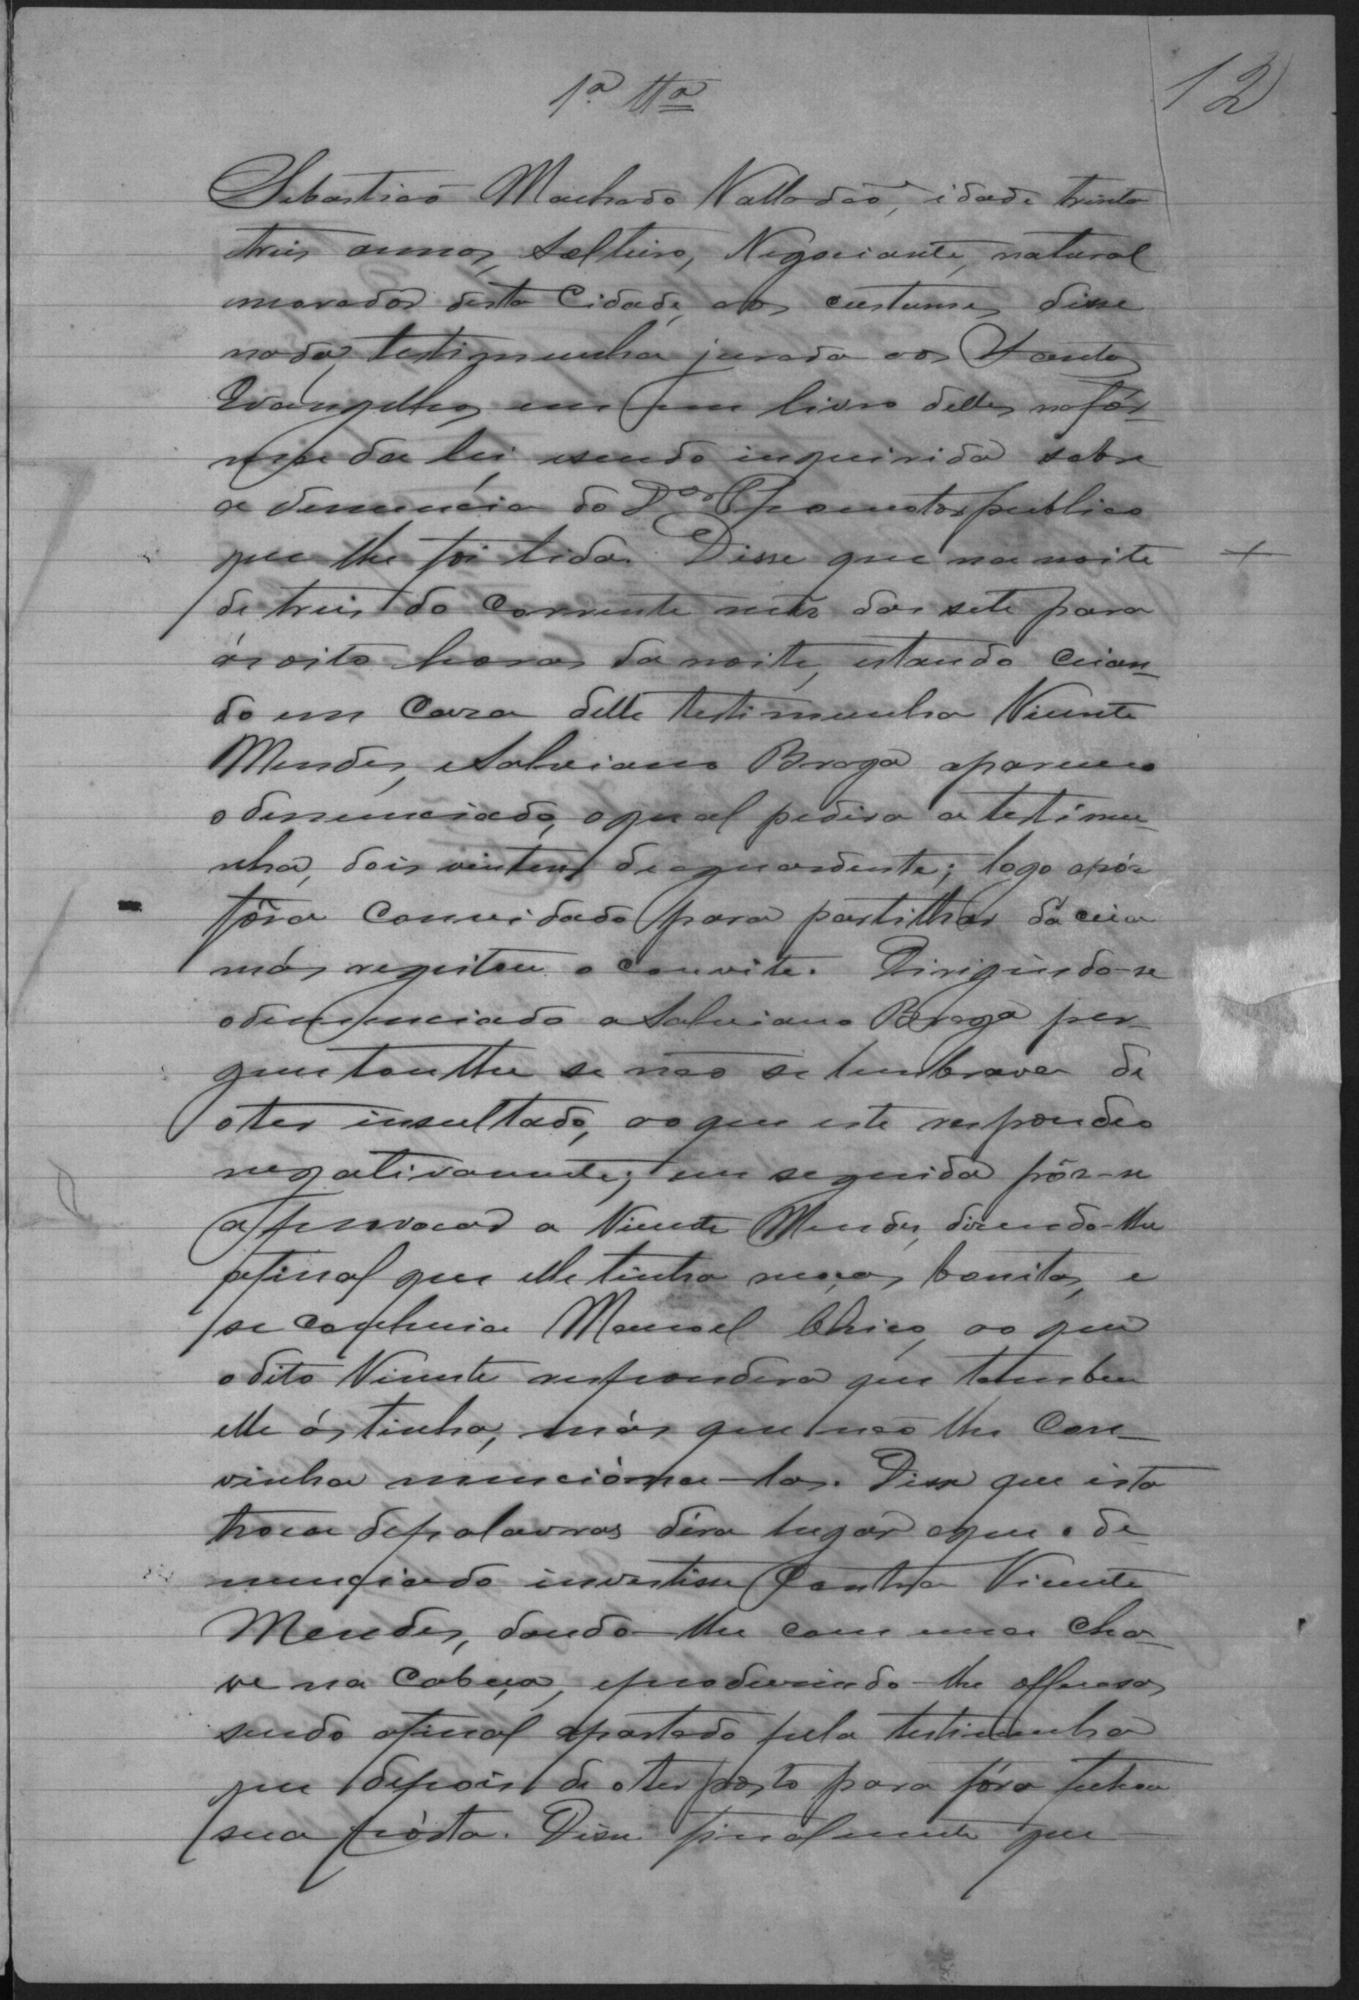 12
1ª ttª
Sebastião Machado Valladão, idade trinta
treis annos, solteiro, Negociante, natural
morador desta Cidade, aos custumes disse
nada, testimunha jurada aos Santos
Evangelhos em um livro delles na fór-
ma da lei, e sendo inquirida sobre
a denuncia do Dor Promotor publico
que lhe foi lida. Disse que na noite
de treis do corrente mês das sete para
ás oito horas da noite, estando ceian-
do em Caza delle testimunha Vicente
Mendes, e Salviano Braga apareceo
o denunciado, o qual pedira a testimu-
nha, dois vintens de aguardente; logo apóz
fôra convidado para partilhar da ceia
más regeitou o convite. Dirigindo-se
o denunciado a Salviano Braga per-
guntou lhe se não se lembrava de
o ter insultado, ao que este respondeo
negativamente; em seguida pôz-se
a provocar a Vicente Mendes, dizendo-lhe
afinal que elle tinha moças bonitas, e
se conhecia Manoel Chico, ao que
o dito Vicente respondera que tambem
elle ás tinha, más que não lhe Con-
vinha mencióna-las. Disse que esta
troca de palavras déra lugar a que o de-
nunciado investisse Contra Vicente
Mendes, dando-lhe com uma cha-
ve na Cabeça, e produzindo-lhe offensas
sendo afinal apartado pela testimunha
que depois de o ter posto para fóra fechou
sua pórta. Disse finalmente que